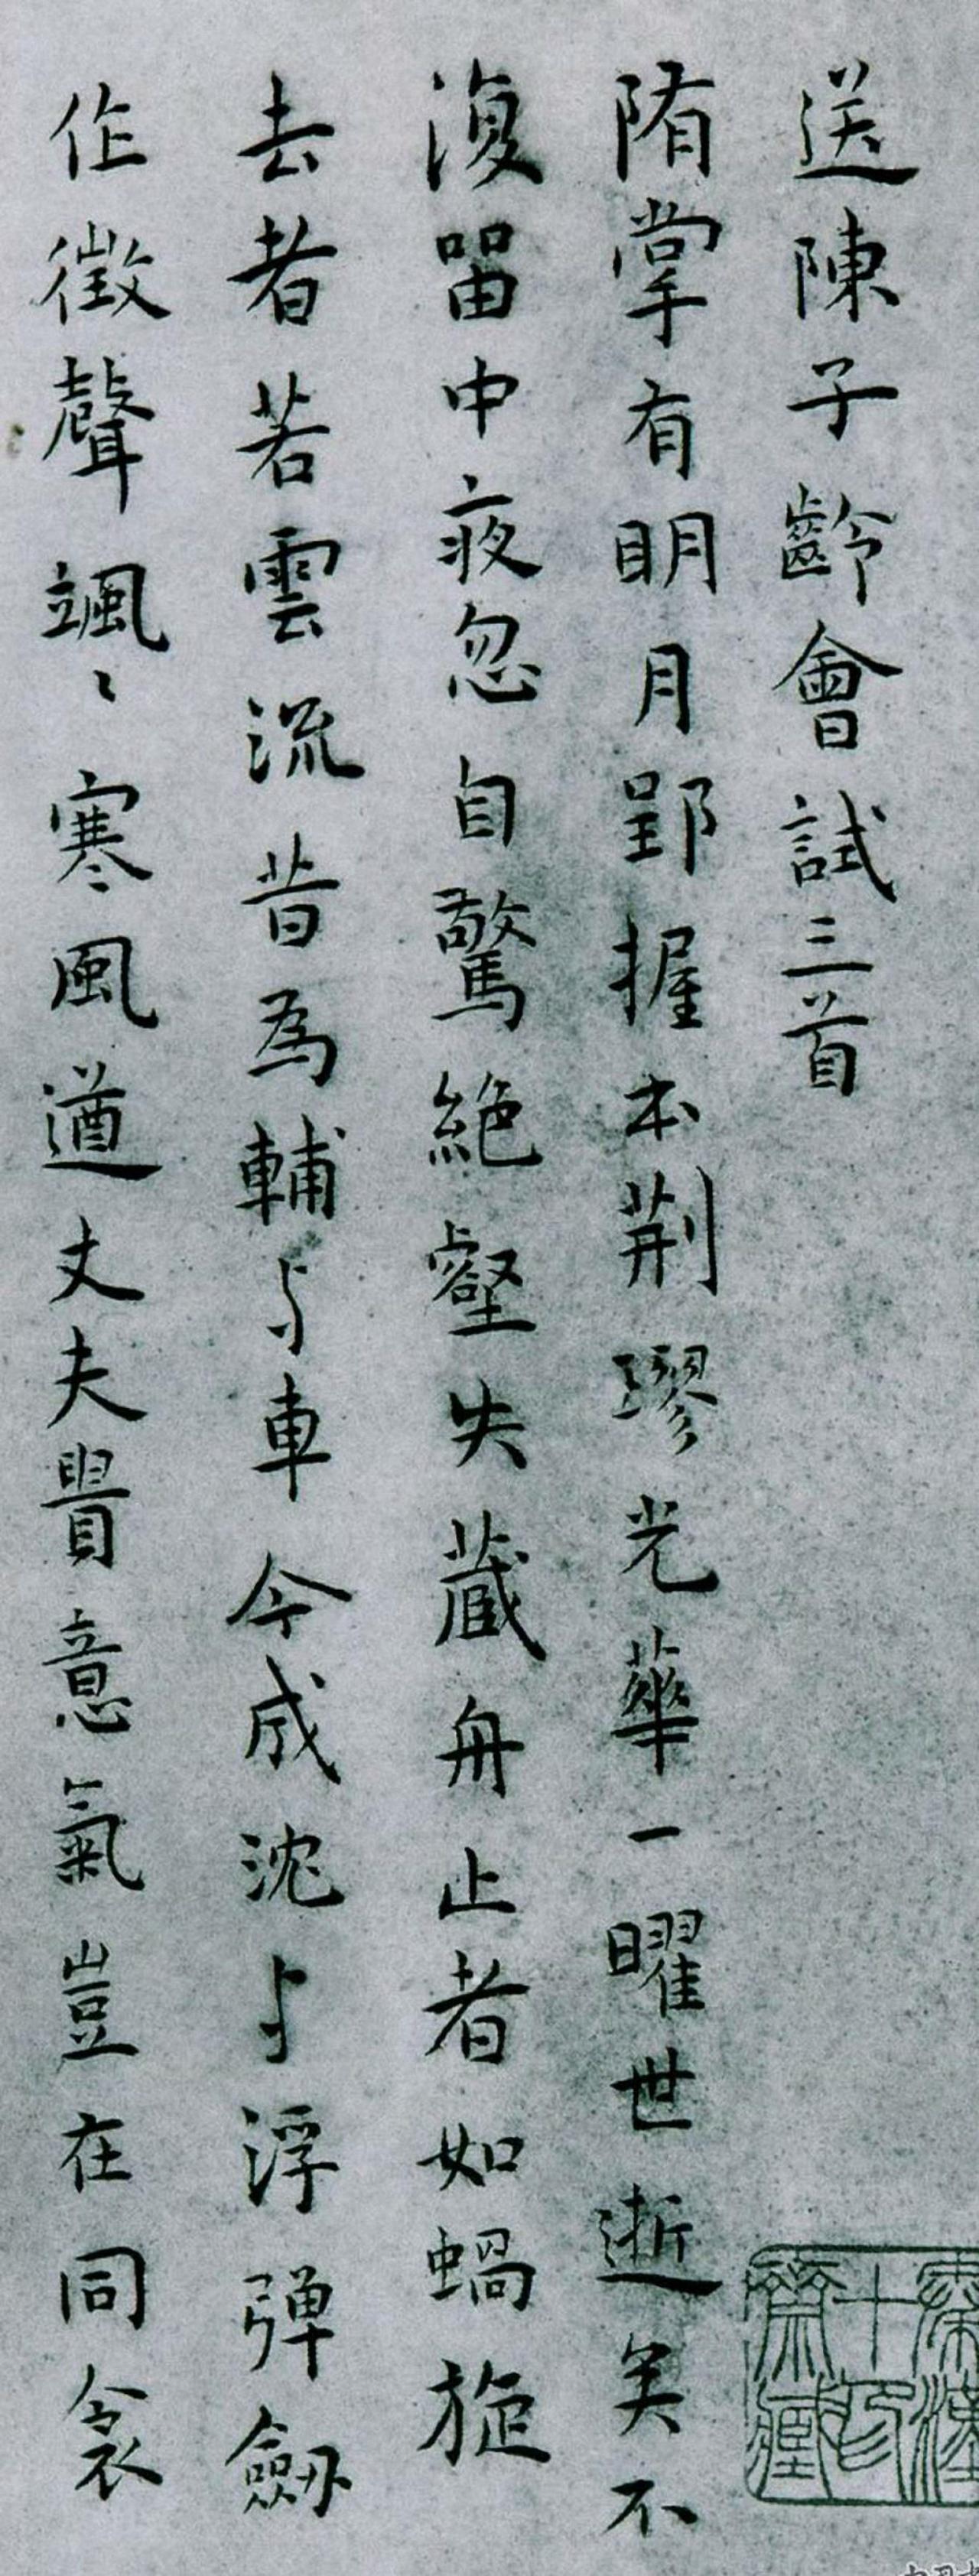 送陳子齡會試三首
隋掌有明月郢握本荆璆光華一曜世逝矣不
復留中夜忽自驚絕壑失藏舟止者如蝸旋
去者若雲流昔為輔与車今成沈与浮彈劒
作徵聲颯〻寒風遒丈夫貴意氣豈在同衾